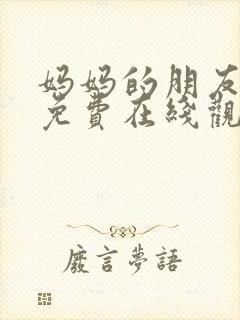 妈妈的朋友
免費在綫觀
廢言夢語